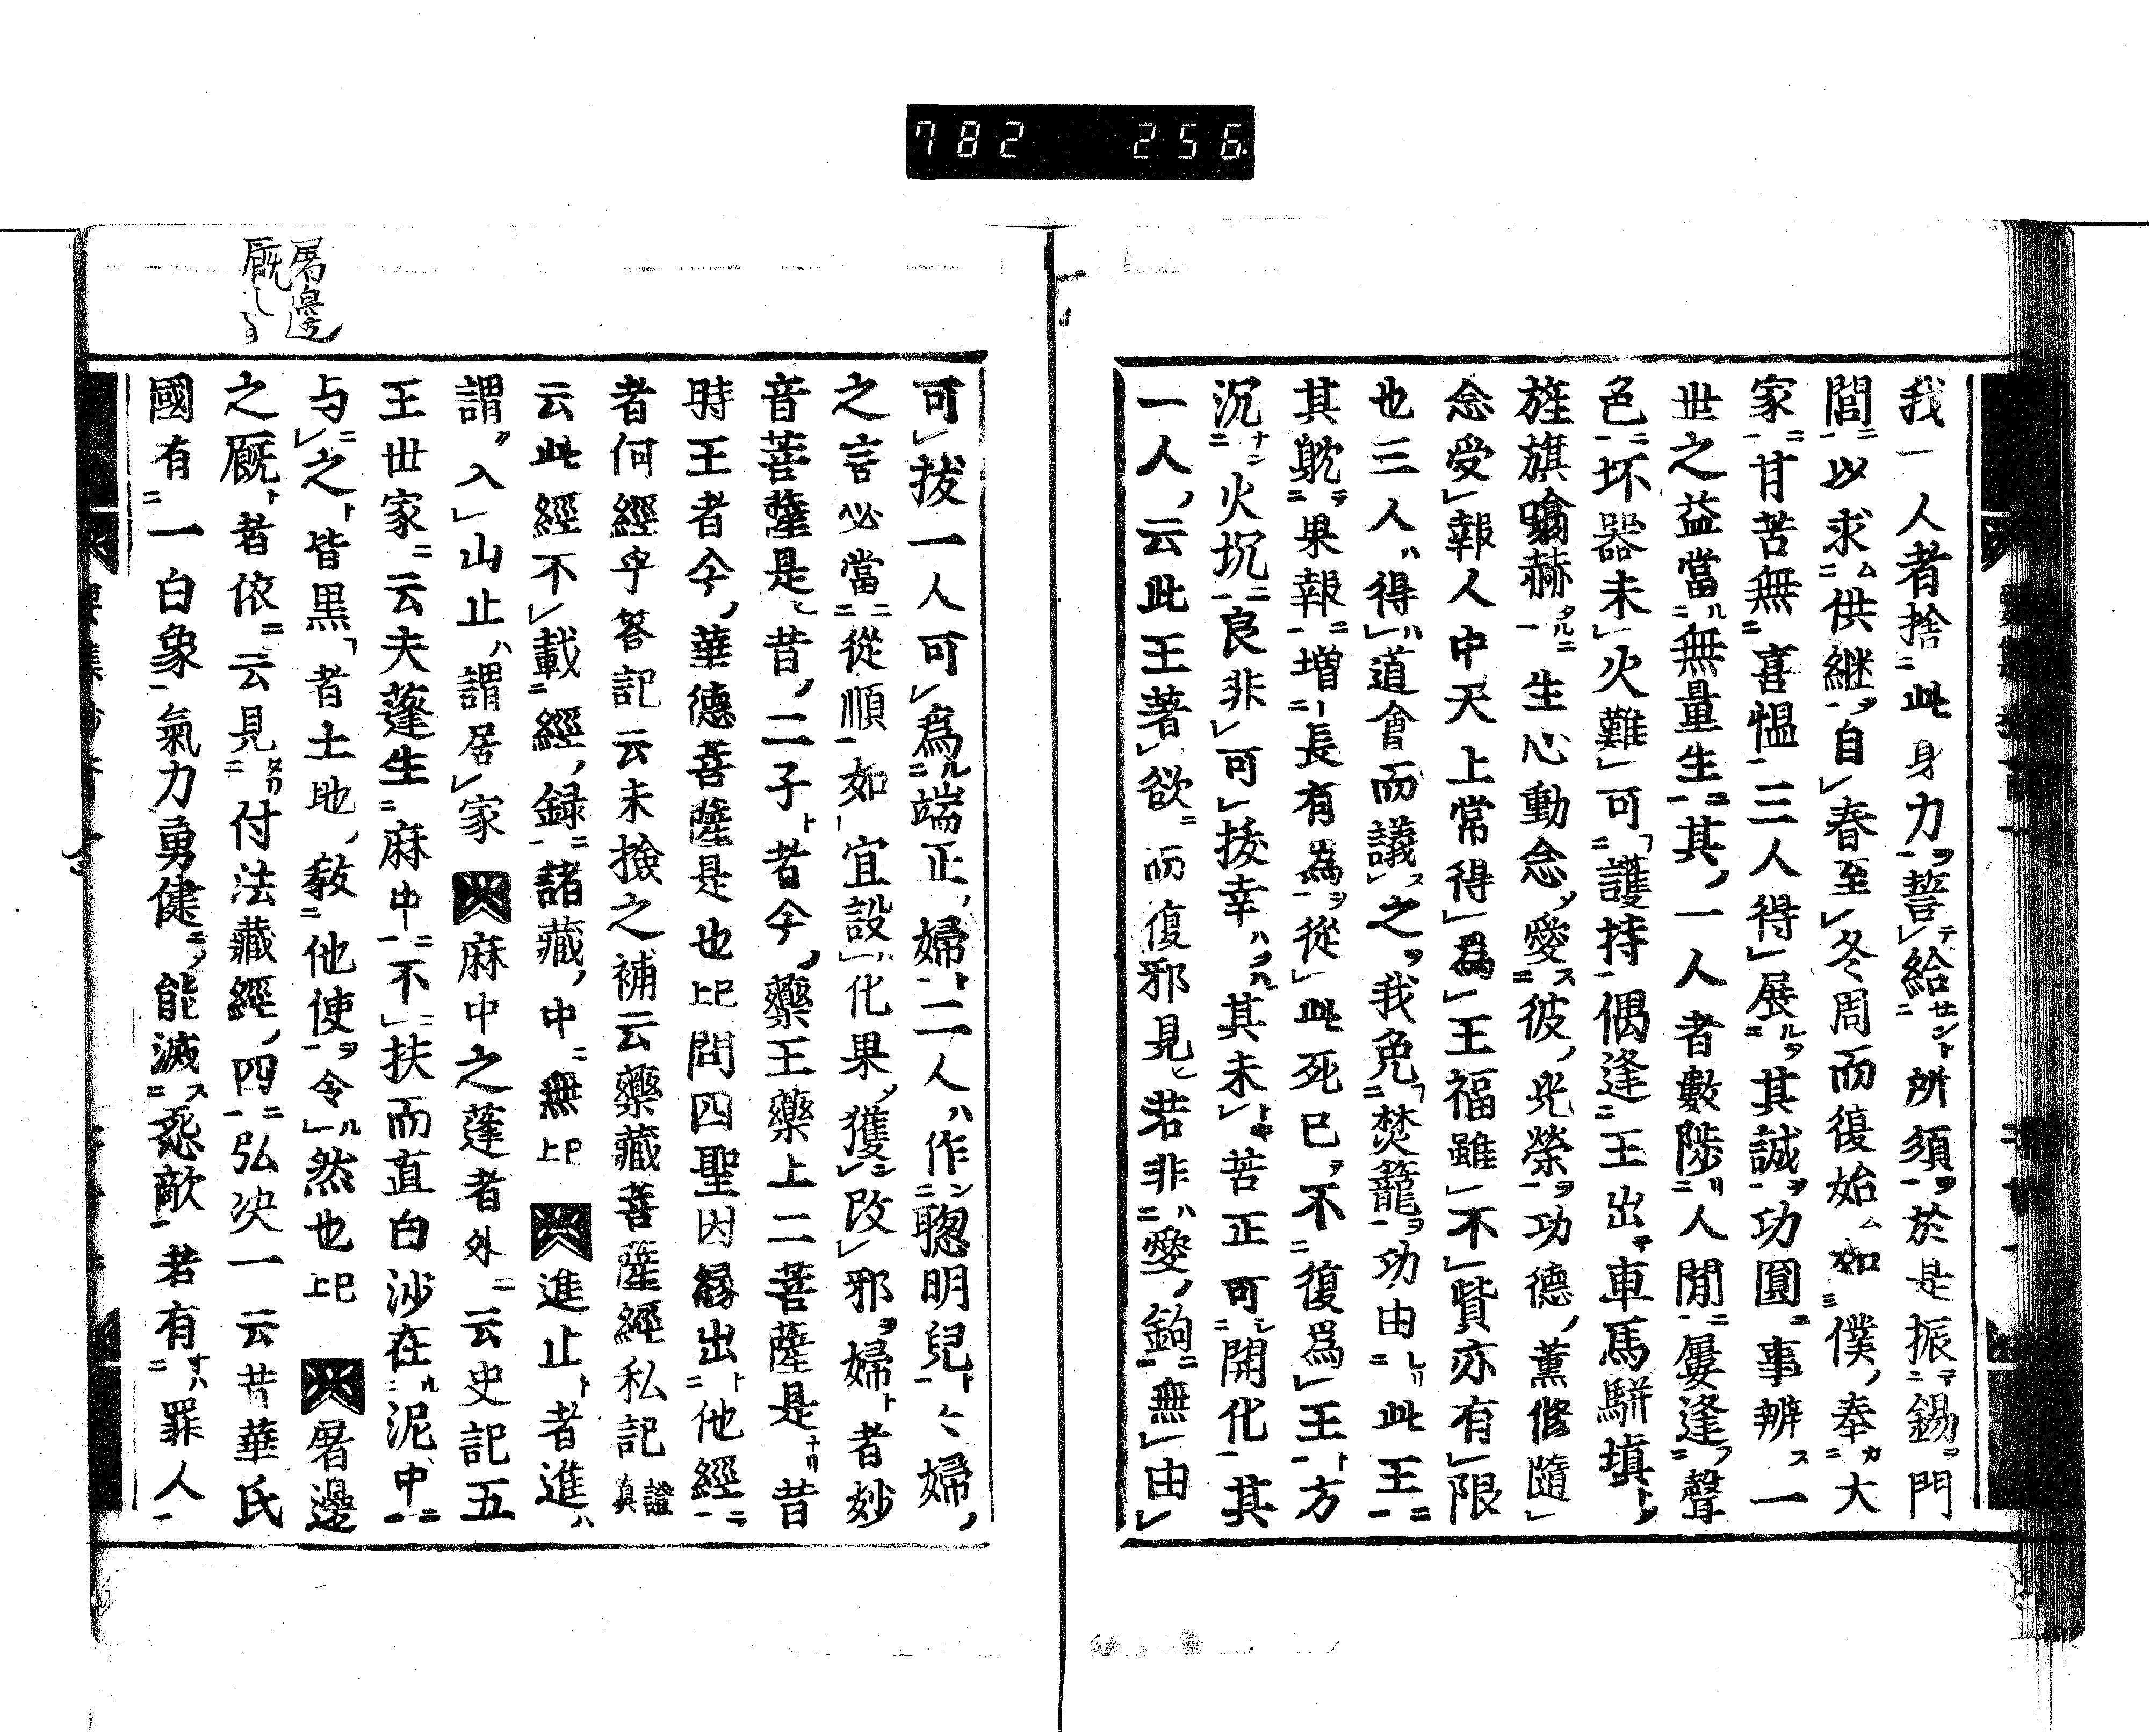 782 256
我一人者捨此身力誓給所須於是振錫門
閭以求供継自春至冬周而復始如僕奉大
家甘苦無喜慍三人得展其誠功圓事辨一
世之益當無量生其一人者數陟人閒屢逢聲
色坏器未火難可護持偶逢王出車馬駢塡
旌旗翕赫生心動念愛彼光榮功德薫修隨
念受報人中天上常得爲王福雖不貲亦有限
也三人得道會而議之我免焚籠功由此王
其躭果報増長有爲從此死已不復爲王方
沉火坑良非可按幸其未苦正可開化其
一人云此王著欲而復邪見若非愛鉤無由
可拔一人可爲端正婦二人作聰明兒〻婦
之言必當從順如宜設化果獲改邪婦者妙
音菩薩是昔二子者今藥王藥上二菩薩是昔
時王者今華德菩薩是也上巳問四聖因縁出他經
者何經乎答記云未撿之補云藥藏菩薩經私記證眞
云此經不載經録諸藏中無上巳進止者進
謂入山止謂居家麻中之蓬者外云史記五
王世家云夫蓬生麻中不扶而直白沙在泥中
与之皆黒者土地教他使令然也上巳屠邊
之厩者依云見付法藏經四弘决一云昔華氏
國有一白象氣力勇健能滅怨敵若有罪人
屠邊
厩